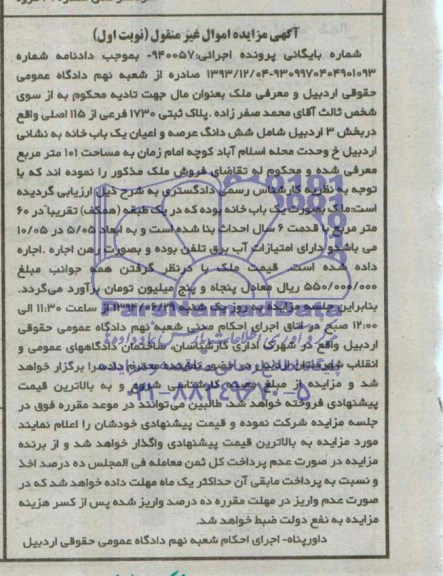 آگهی مزایده اموال غیر منقول (نوبت اول)
شماره بایگانی پرونده اجرائی:۹۴۰۰۵۷- بموجب دادنامه شماره
۹۳۰۹۹۷۰۴۰۴۹۰۱۰۹۳-۱۳۹۳/۱۲/۰۴ صادره از شعبه نهم دادگاه عمومی
حقوقی اردبیل و معرفی ملک بعنوان مال جهت تادیه محکوم به از سوی
شخص ثالث آقای محمد صفر زاده .پلاک ثبتی ۱۷۳۰ فرعی از ۱۱۵ اصلی واقع
دربخش ۳ اردبیل شامل شش دانگ عرصه و اعیان یک باب خانه به نشانی
اردبیل خ وحدت محله اسلام آباد کوچه امام زمان به مساحت ۱۰۱ متر مربع
معرفی شده و محکوم له تقاضای فروش ملک مذکور را نموده اند که با
توجه به نظریه کارشناس رسمی دادگستری به شرح ذیل ارزیابی گردیده
است:ملک بصورت یک باب خانه بوده که در یک طبقه (همکف) تقریبا در ۶۰
متر مربع با قدمت ۶ سال احداث بنا شده است و به ابعاد ۵/۰۵ در ۱۰/۰۵
می باشد و دارای امتیازات آب برق تلفن بوده و بصورت رهن اجاره .اجاره
داده شده است. قیمت ملک با درنظر گرفتن همه جوانب مبلغ
۵۵۰/۰۰۰/۰۰۰ ریال معادل پنجاه و پنج میلیون تومان برآورد می‌گردد.
بنابراین جلسه مزایده به روز یک شنبه از ساعت ۱۱:۳۰ الی
۱۲:۰۰ صبح در اتاق اجرای احکام مدنی شعبه نهم دادگاه عمومی حقوقی
اردبیل واقع در شهرک اداری کارشناسان، ساختمان دادگاههای عمومی و
انقلاب شهرستان اردبیل در حضور نماینده محترم دادسرا برگزار خواهد
شد و مزایده از مبلغ معینه کارشناسی شروع و به بالاترین قیمت
پیشنهادی فروخته خواهد شد. طالبین می‌توانند در موعد مقرره فوق در
جلسه مزایده شرکت نموده و قیمت پیشنهادی خودشان را اعلام نمایند
مورد مزایده به بالاترین قیمت پیشنهادی واگذار خواهد شد و از برنده
مزایده در صورت عدم پرداخت کل ثمن معامله فی المجلس ده درصد اخذ
و نسبت به پرداخت مابقی آن حداکثر یک ماه مهلت داده خواهد شد که در
صورت عدم واریز در مهلت مقرره ده درصد واریز شده پس از کسر هزینه
مزایده به نفع دولت ضبط خواهد شد.
دادورپناه- اجرای احکام شعبه نهم دادگاه عمومی حقوقی اردبیل
ParsNamadData
۰۲۱-۸۸۳۴۹۶۷۰-۵